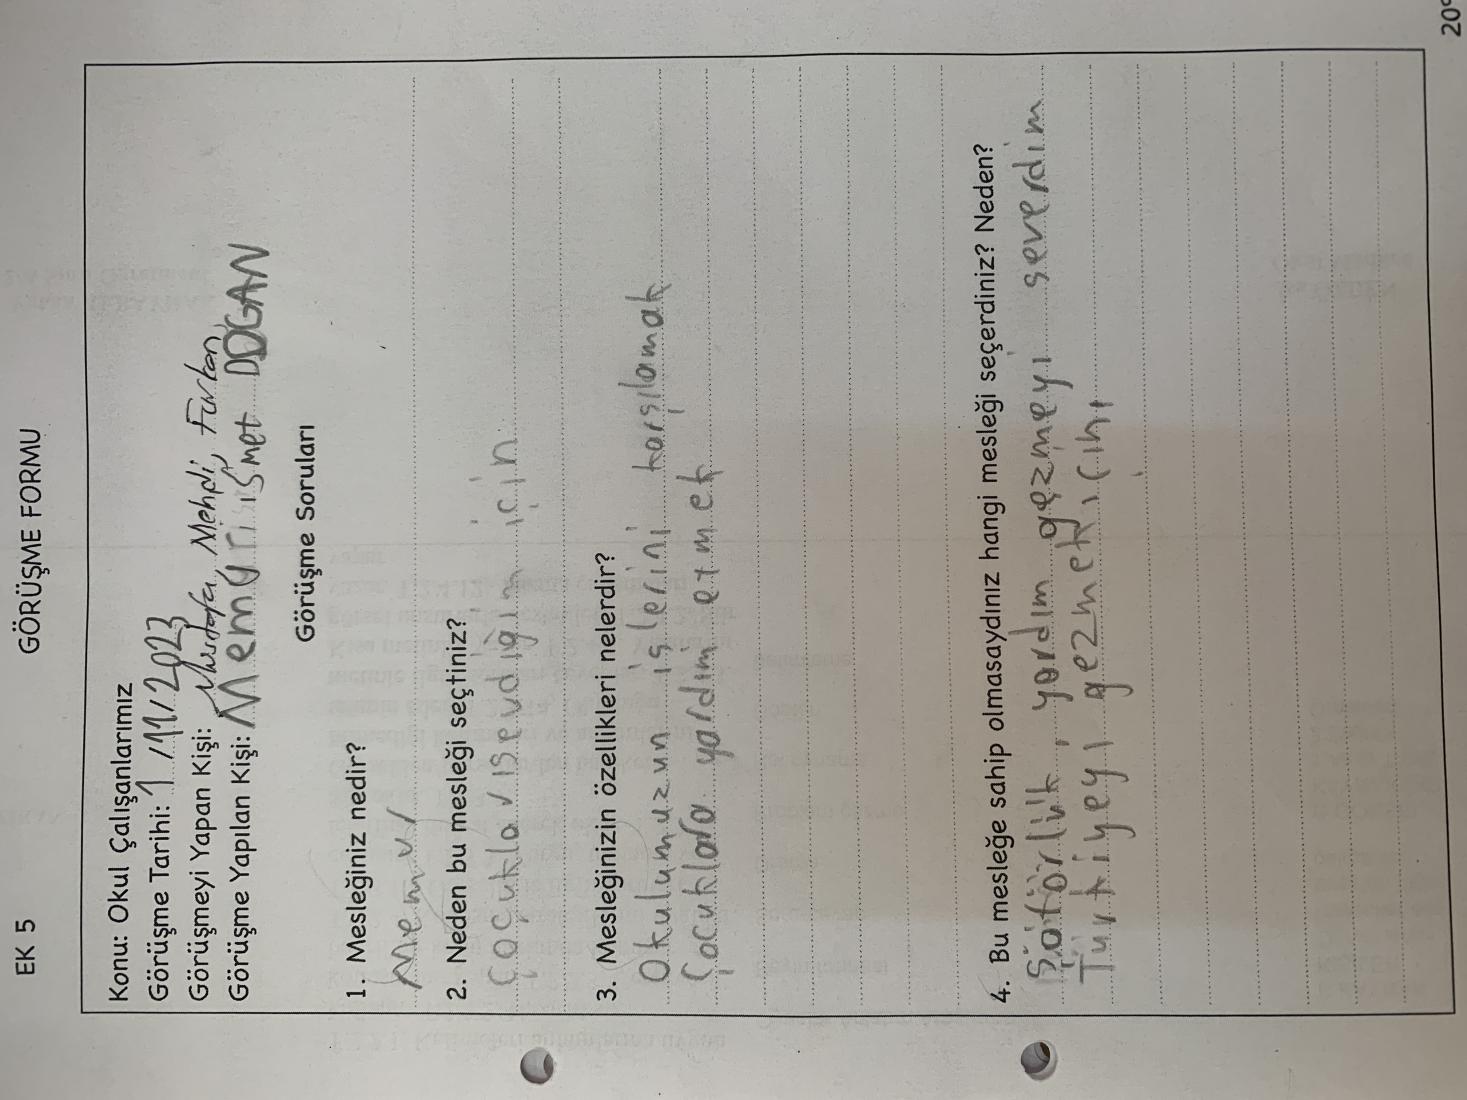 EK 5 GÖRÜŞME FORMU
Konu: Okul Çalışanlarımız
Görüşme Tarihi: 1/11/2023
Görüşmeyi Yapan Kişi: Mustafa, Mehdi, Furkan
Görüşme Yapılan Kişi: DOĞAN
Görüşme Soruları
1. Mesleğiniz nedir?
Memur
2. Neden bu mesleği seçtiniz?
Çocukları sevdiğim için
3. Mesleğinizin özellikleri nelerdir?
Okulumuzun işlerini karşılamak
Çocuklara yardım etmek
4. Bu mesleğe sahip olmasaydınız hangi mesleği seçerdiniz? Neden?
Şöförlük, yardım gezmeyi severdim
Türkiyeyi gezmek için